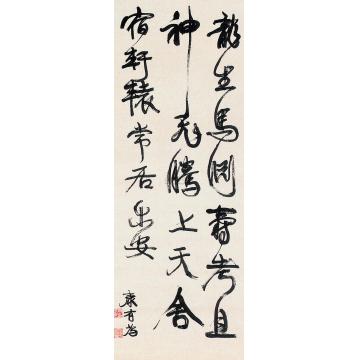 龍生馬淵壽考且
神飛騰上天舍
宿軒轅常居樂安
康有為